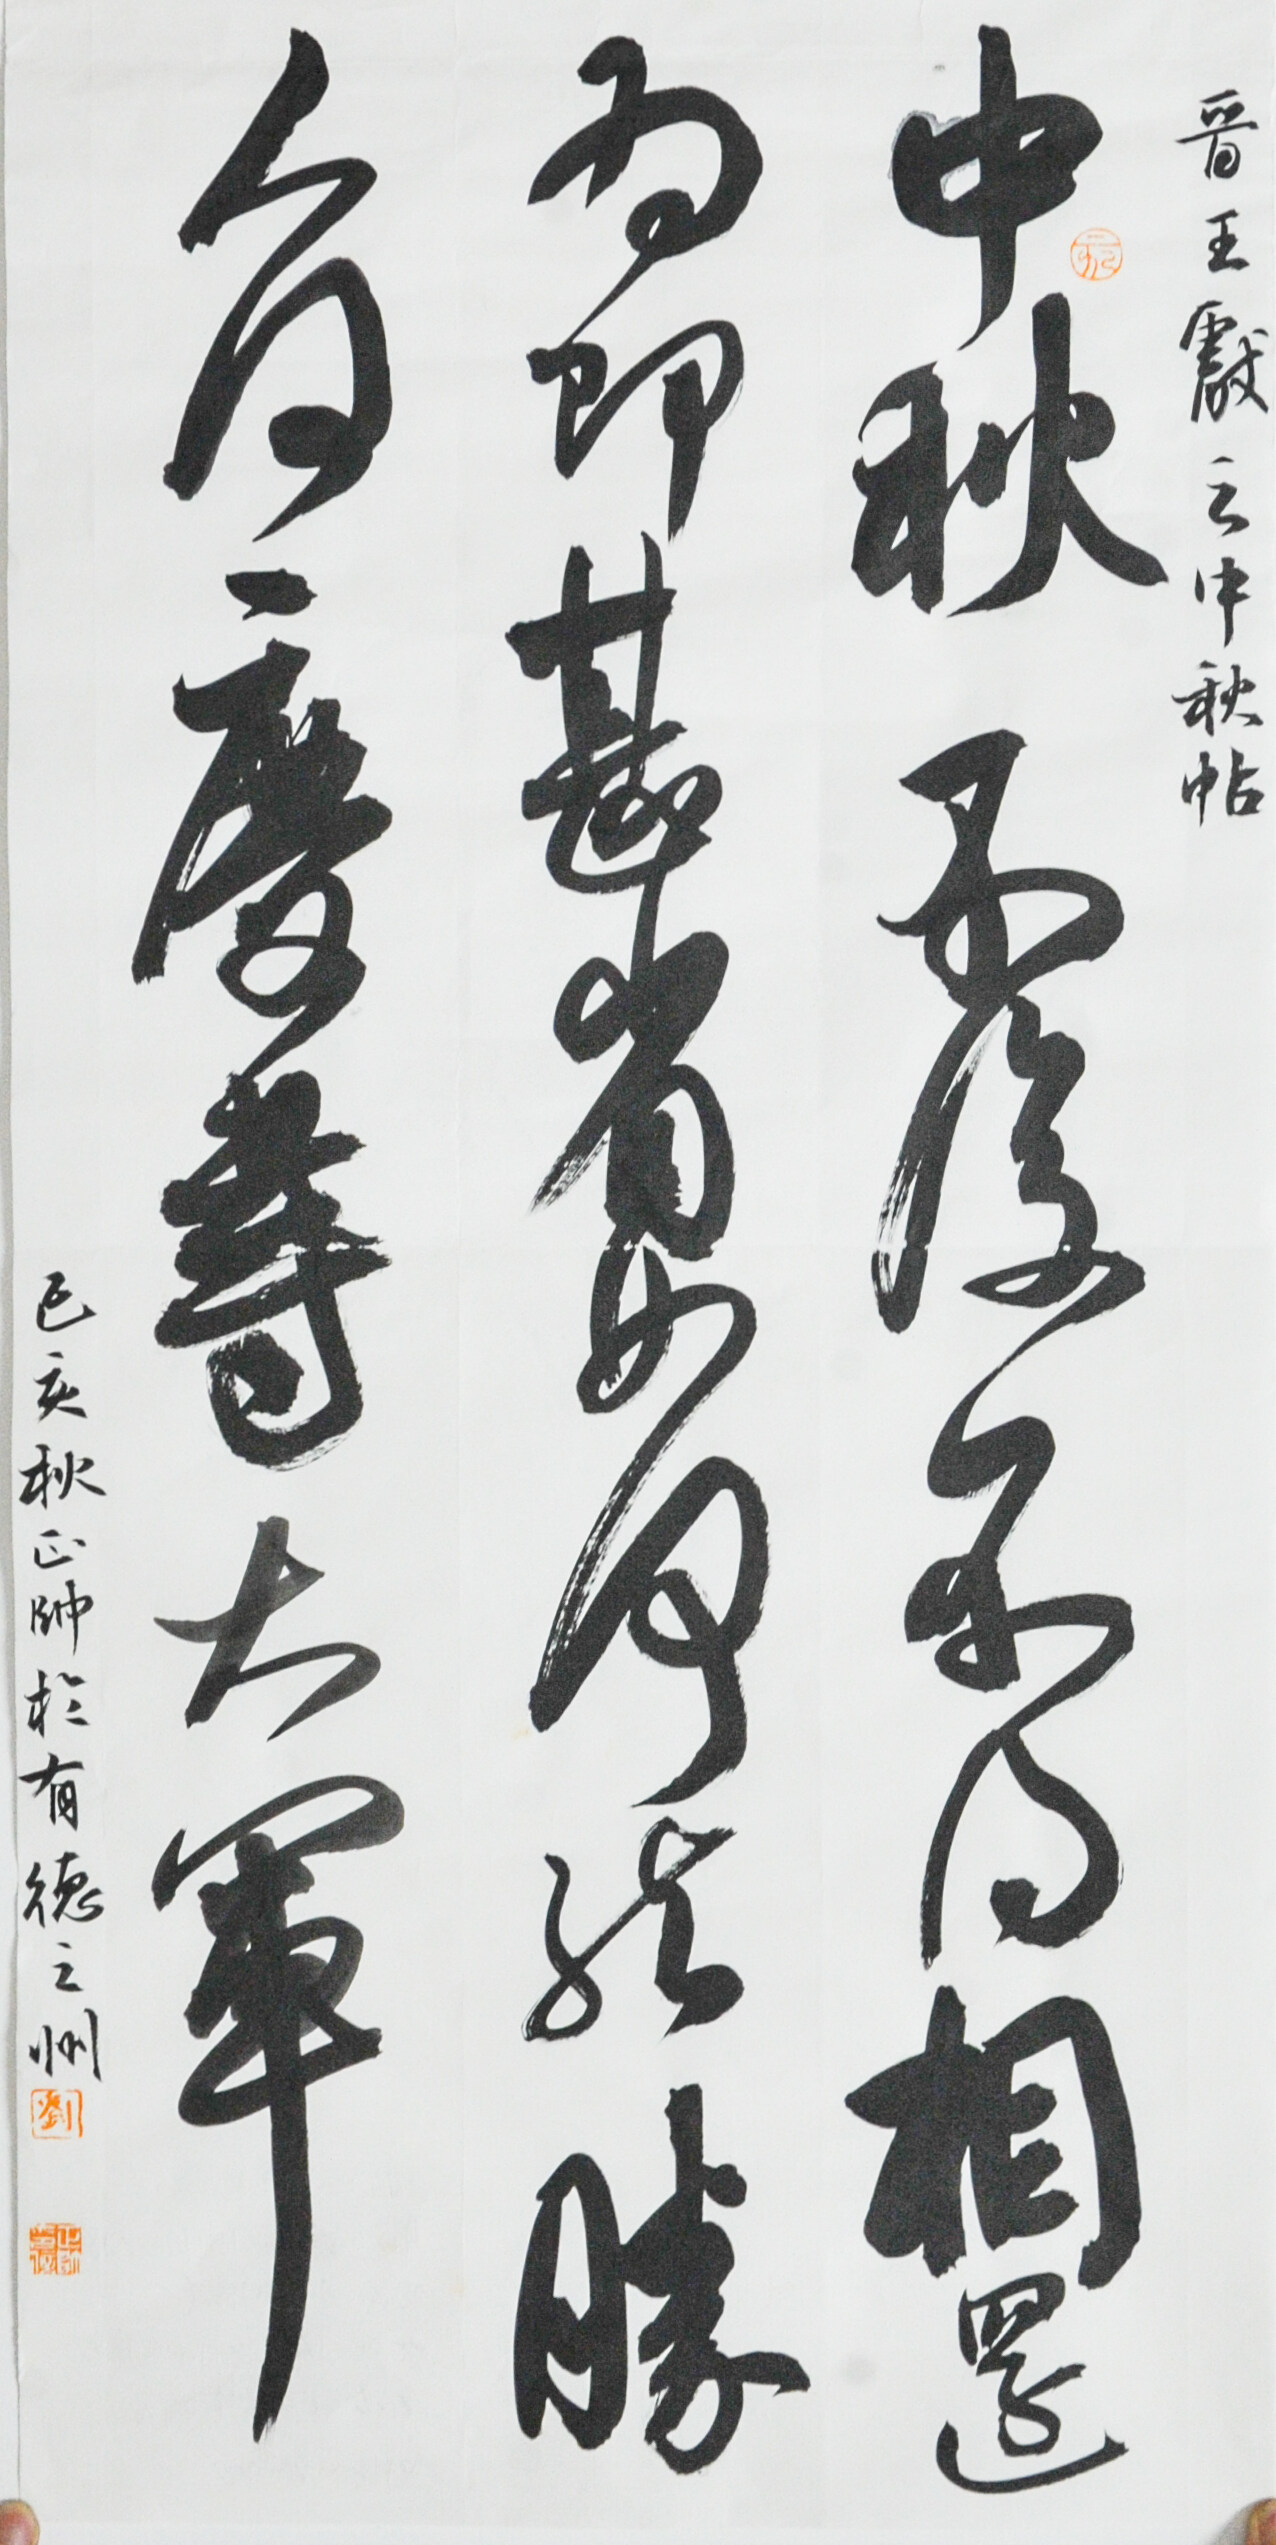 晋王獻之中秋帖
中秋不復不得相還
為即甚省如何然勝
人何慶等大軍
己亥秋正帥於有德之州
劉